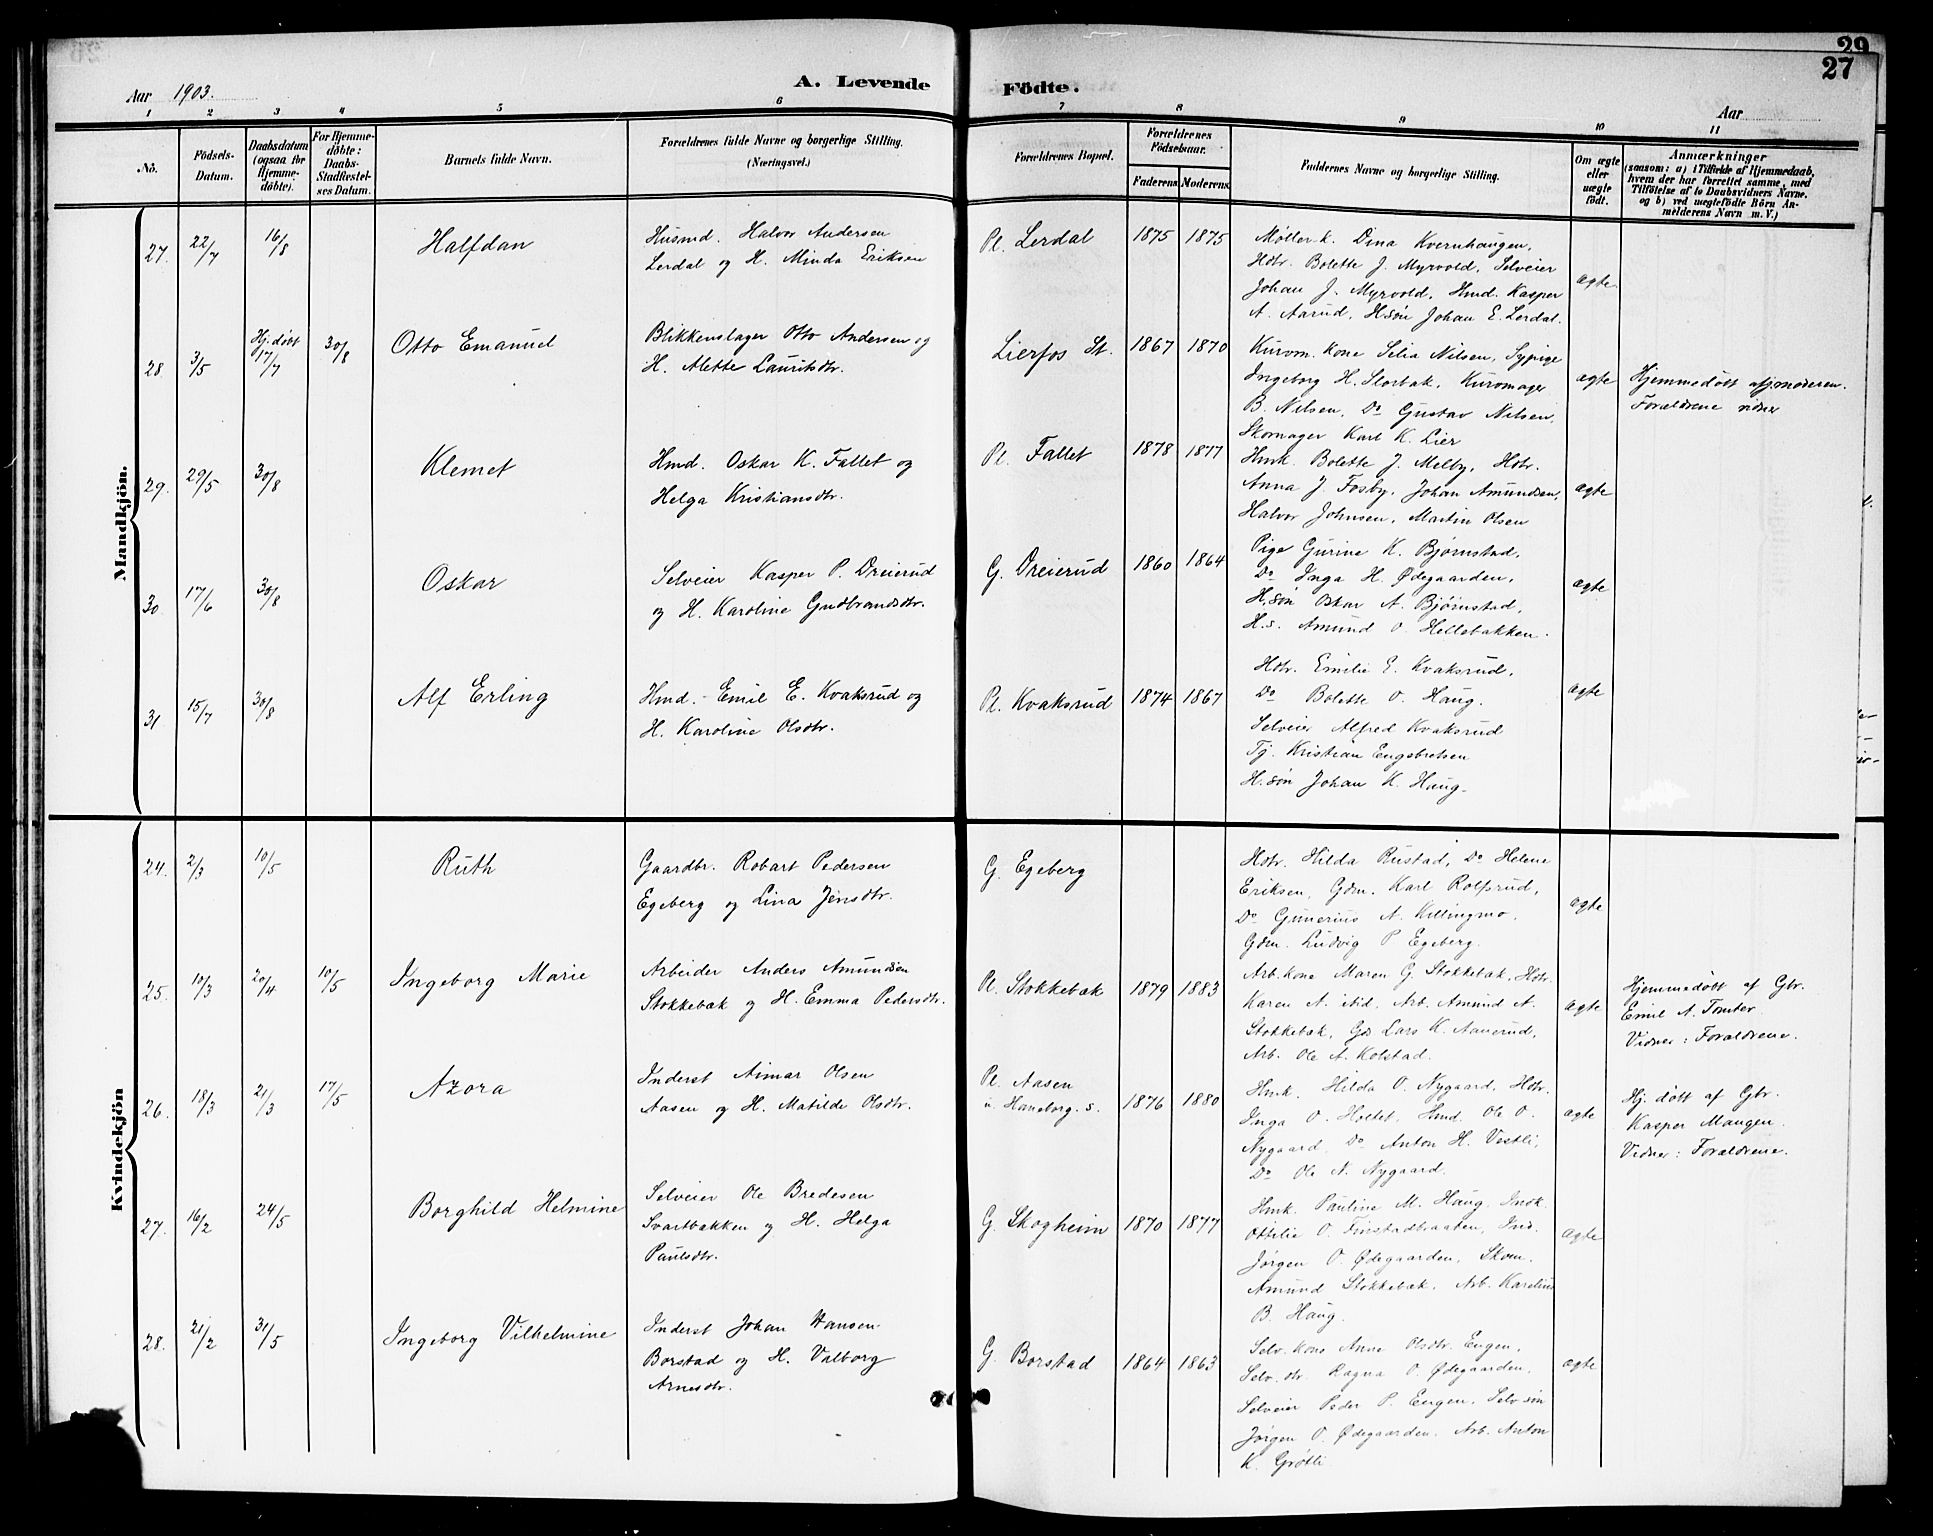 29
27
Aar 1903.
A. Levende
Födte.
Aar
1 2 3 4 5 6 7 8 9 10 11
No.
Födsels-
Datum.
Daabsdatum
(ogsaa for
Hjemme-
döbte).
For Hjemme-
döbte:
Daabs-
Stadfæstel-
ses Datum.
Barnets fulde Navn.
Forældrenes fulde Navne og borgerlige Stilling.
(Næringsvei.)
Forældrenes Bopæl.
Forældrenes
Födselsaar.
Faderens
Moderens
Faddernes Navne og borgerlige Stilling.
Om ægte
eller
uægte
födt.
Anmærkninger
(saasom: a) i Tilfælde af Hjemmedaab,
hvem der har forrettet samme, med
Tilföielse af to Daabsvidners Navne,
og b) ved uægtefödte Börn An-
melderens Navn m. V.)
Mandkjön.
27. 22/7 16/8
Halfdan
Husmd. Halvor Andersen
Lerdal og H. Minda Eriksen
Pl. Lerdal 1875 1875
Møller k. Dina Kvernhaugen,
Hdtr. Bolette J. Myrvold, Selveier
Johan J. Myrvold, Hmd. Kasper
A. Aarud, H.søn Johan E. Lerdal.
ægte
28. 3/5 Hj. døbt
17/7 30/8
Otto Emanuel
Blikkenslager Otto Andersen og
H. Alette Lauritsdtr.
Lierfos St. 1867 1870
Kurvm. kone Selia Nilsen, Sypige
Ingeborg H. Storbak, Kurvmager
B. Nilsen, Do Gustav Nilsen,
Skomager Karl K. Lier
ægte
Hjemmedøbt af jmoderen.
Forældrene vidner
29. 29/5 30/8
Klemet
Hmd. Oskar K. Fallet og
Helga Kristiansdtr.
Pl. Fallet 1878 1877
Hmk. Bolette J. Melby, Hdtr.
Anna J. Fosby, Johan Amundsen,
Halvor Johnsen, Martin Olsen
ægte
30. 17/6 30/8
Oskar
Selveier Kasper P. Dreierud
og H. Karoline Gudbrandsdtr.
G. Dreierud 1860 1864
Pige Gurine K. Bjørnstad,
Do Inga H. Ødegaarden,
H.søn Oskar A. Bjørnstad,
H.s. Amund O. Hellebakken.
ægte
31. 15/7 30/8
Alf Erling
Hmd. Emil E. Kvaksrud og
H. Karoline Olsdtr.
Pl. Kvaksrud 1874 1867
Hdtr. Emilie E. Kvaksrud,
Do Bolette O. Haug.
Selveier Alfred Kvaksrud
Tj. Kristian Engebretsen
H.søn Johan K. Haug.
ægte
Kvindekjön
24. 2/3 10/5
Ruth
Gaardbr. Robart Pedersen
Egeberg og Lina Jensdtr.
G. Egeberg
Hdtr. Hilda Rustad, Do Helene
Eriksen, Gdm. Karl Rolfsrud,
Do Gunerius A. Killingmo.
Gdm. Ludvig P. Egeberg.
ægte
25. 10/3 20/4 10/5
Ingeborg Marie
Arbeider Anders Amundsen
Stokkebæk og H. Emma Pedersdtr.
Pl. Stokkebæk 1879 1883
Arb. kone Maren G. Stokkebæk, Hdtr.
Karen A. ibid, Arb. Amund A.
Stokkebæk, Gs Lars K. Aanerud,
Arb. Ole A. Kolstad.
ægte
Hjemmedøbt af Gbr.
Emil A. Tomter.
Vidner: Forældrene.
26. 18/3 21/3 17/5
Azora
Inderst Aimar Olsen
Aasen og H. Matilde Olsdtr.
Pl. Aasen
u. Haneborg. s. 1876 1880
Hmk. Hilda O. Nygaard, Hdtr.
Inga O. Holtet, Hmd. Ole O.
Nygaard, Do Anton H. Vestli,
Do Ole N. Nygaard.
ægte
Hj. døbt af Gbr.
Kasper Mangen.
Vidner: Forældrene.
27. 16/2 24/5
Borghild Helmine
Selveier Ole Bredesen
Svartbakken og H. Helga
Paulsdtr.
G. Skogheim 1870 1877
Hmk. Pauline M. Haug, Indk.
Ottilie O. Finstadbraaten, Ind.
Jørgen O. Ødegaarden, Skom.
Amund Stokkebæk, Arb. Karelius
B. Haug.
ægte
28. 21/2 31/5
Ingeborg Vilhelmine
Inderst Johan Hansen
Borstad og H. Valborg
Arnesdtr.
G. Borstad 1864 1863
Selv. kone Anne Olsdtr. Engen,
Selv. dtr. Ragna O. Ødegaarden,
Selveier Peder P. Engen, Selv søn
Jørgen O. Ødegaarden, Arb. Anton
K. Grøtli
ægte